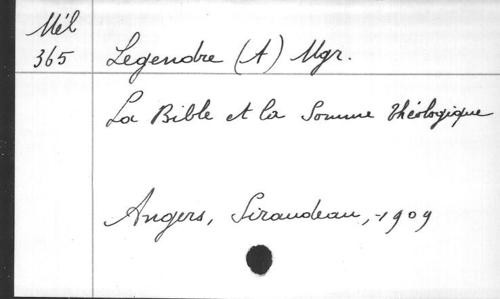 Mél
365 Legendre (A) Mgr.
La Bible et la Somme théologique
Angers, Siraudeau, -1909